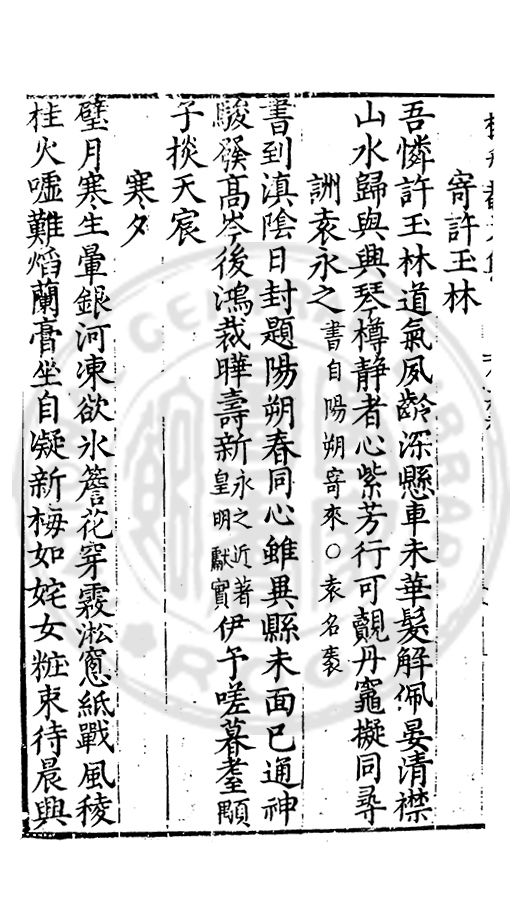 寄許玉林
吾憐許玉林道氣夙齡深懸車未華髮解佩晏清襟
山水歸與興琴樽静者心紫芳行可覿丹竈擬同尋
詶袁永之書自陽朔寄來○袁名袠
書到滇陰日封題陽朔春同心雖異縣未面已通神
駿發高岑後鴻裁曄壽新永之近著皇明獻實伊予嗟暮耋顒
子掞天宸
寒夕
璧月寒生暈銀河凍欲氷簷花穿霰淞窻紙戰風稜
桂火噓難熖蘭膏坐自凝新梅如姹女粧束待晨興